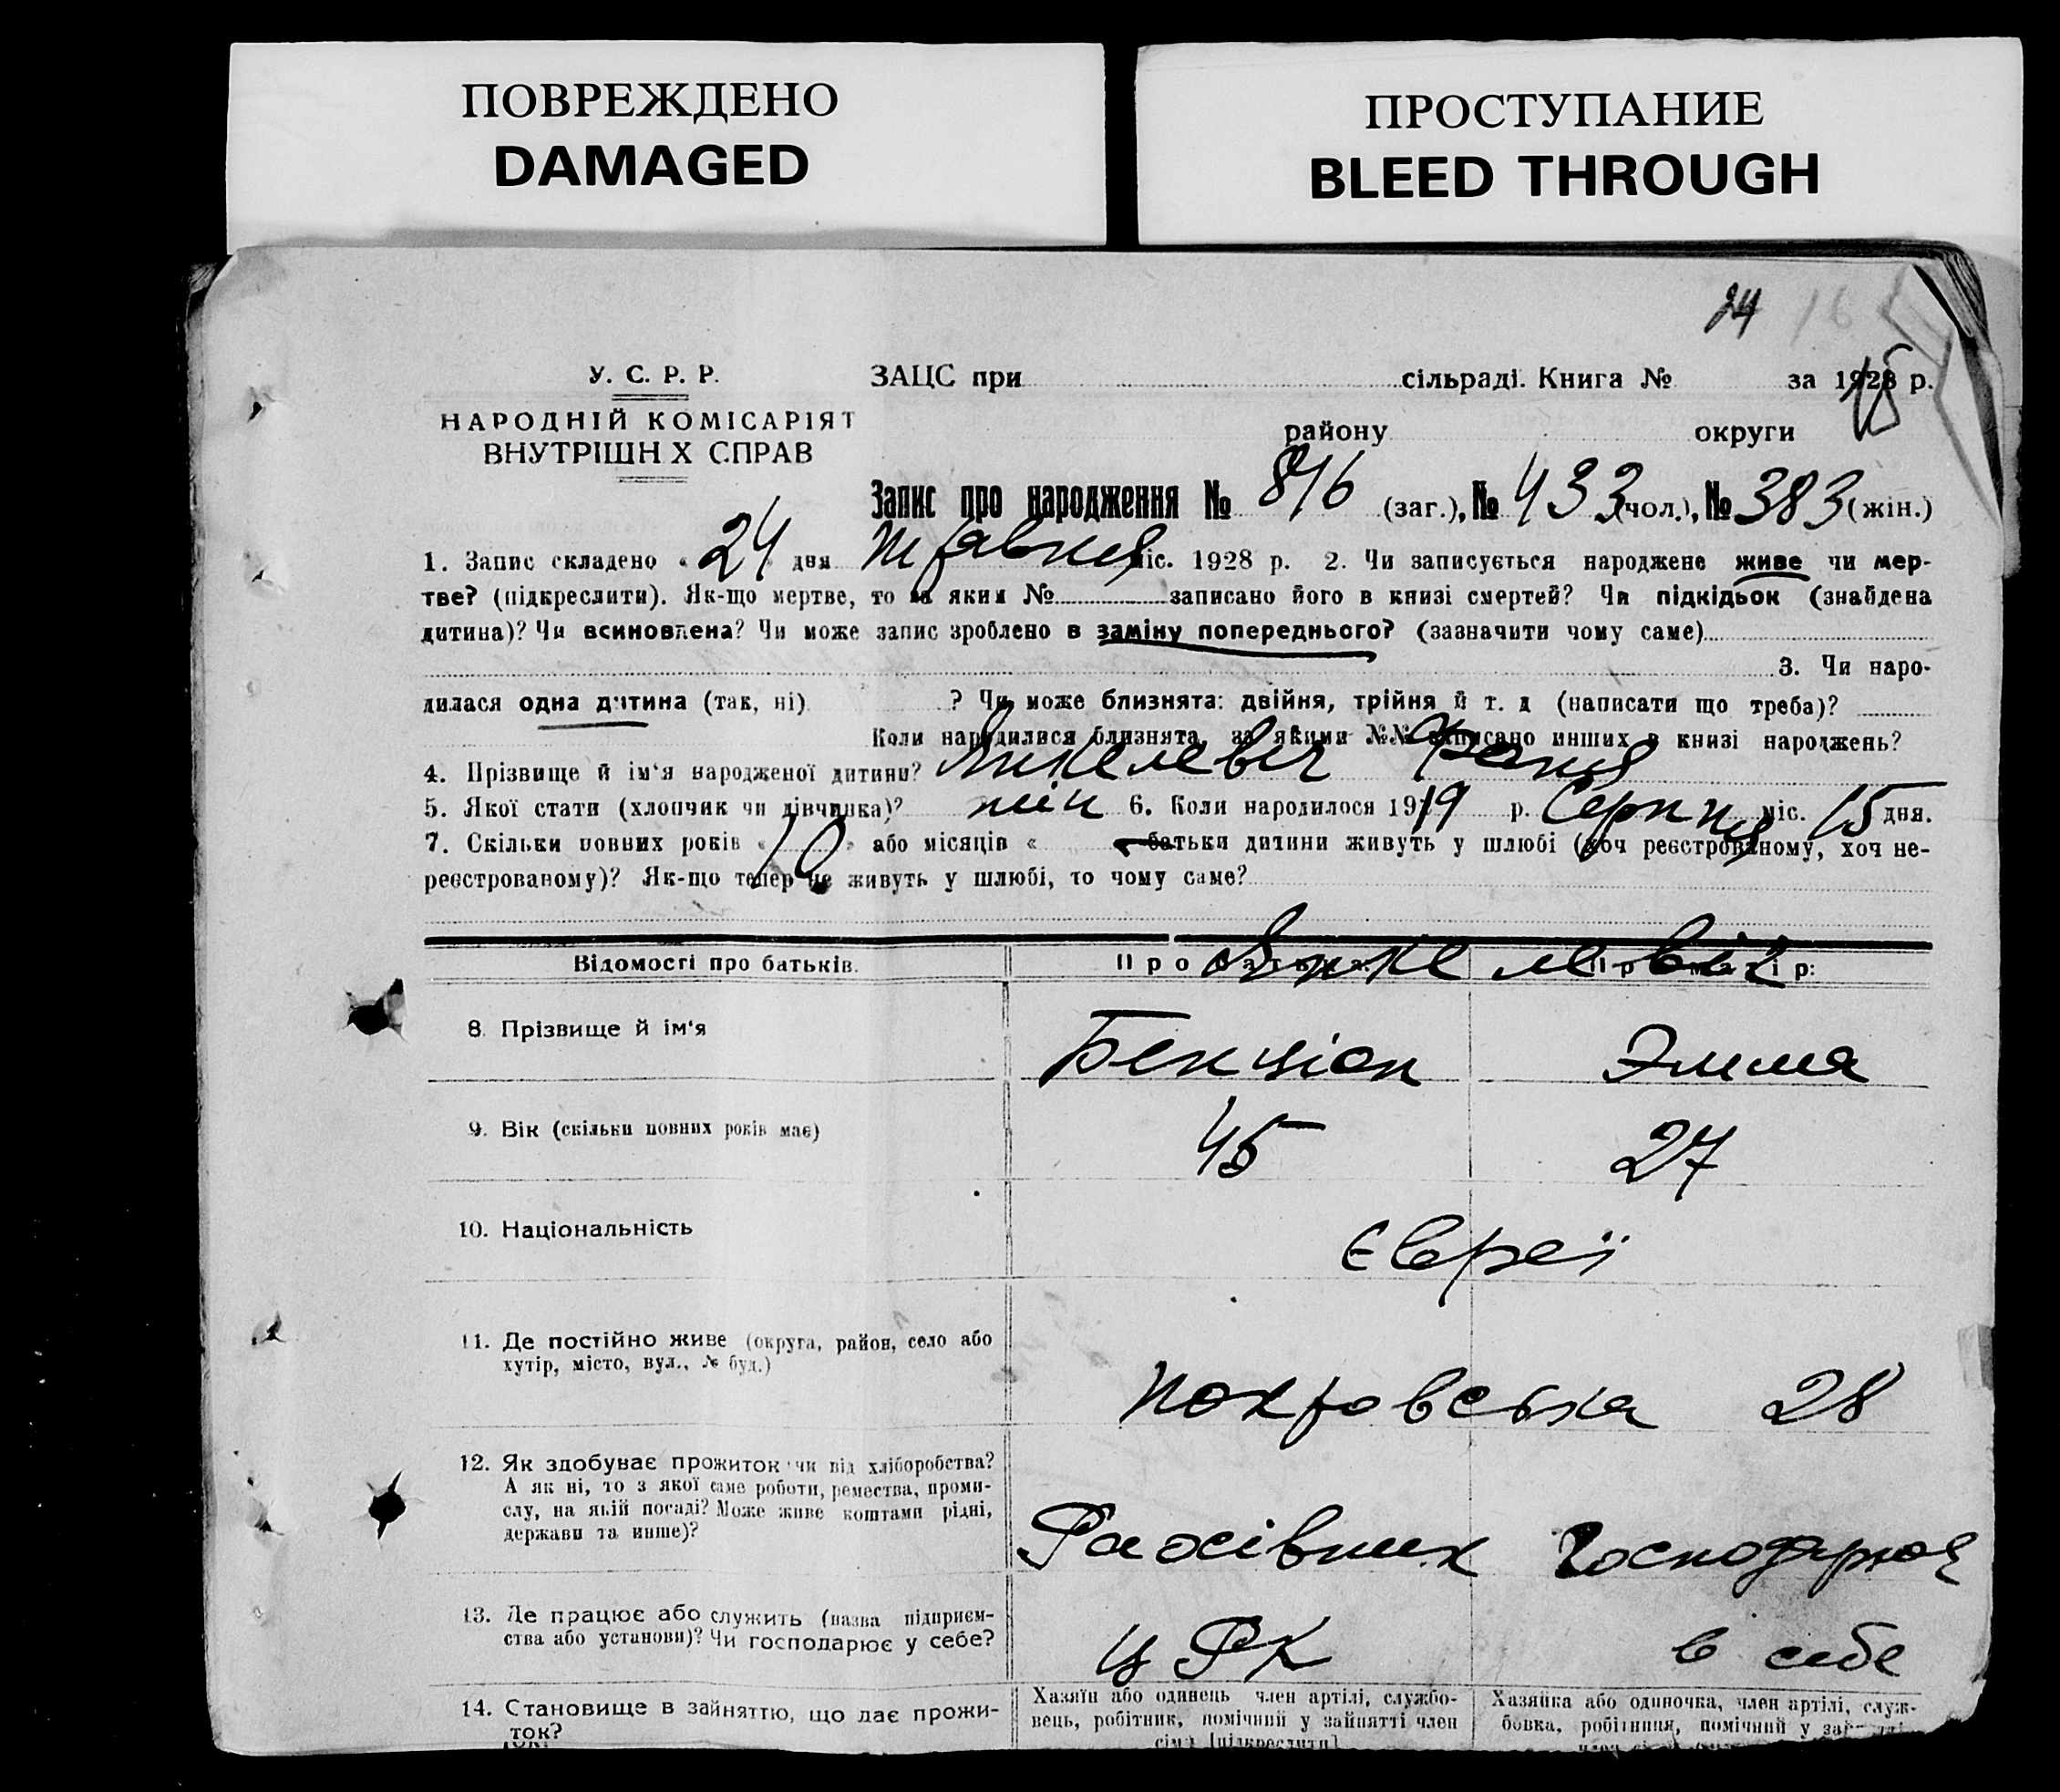 ПОВРЕЖДЕНО
DAMAGED
ПРОСТУПАНИЕ
BLEED THROUGH
24 16
У. С. Р. Р.
НАРОДНІЙ КОМІСАРІЯТ
ВНУТРІШН Х СПРАВ
ЗАЦС при сільраді. Книга № за 1928 р.
району округи
Запис про народження № 816 (заг.), № 433 (чол.), № 383 (жін.)
1. Запис складено « 24 » дня травня міс. 1928 р. 2. Чи записується народжене живе чи мер-
тве? (підкреслити). Як-що мертве, то за яким № записано його в книзі смертей? Чи підкідьок (знайдена
дитина)? Чи всиновлена? Чи може запис зроблено в заміну попереднього? (зазначити чому саме)
3. Чи наро-
дилася одна дитина (так, ні) ? Чи може близнята: двійня, трійня й т. д (написати що треба)?
Коли народилися близнята, за якими №№ записано инших в книзі народжень?
4. Прізвище й ім'я народженої дитини? Янкелевіч Фаня
5. Якої стати (хлопчик чи дівчинка)? жін 6. Коли народилося 1919 р. Серпня міс. 15 дня.
7. Скільки повних років « » або місяців « батьки дитини живуть у шлюбі (хоч реєстрованому, хоч не-
реєстрованому)? Як-що тепер не живуть у шлюбі, то чому саме?
Відомості про батьків. Про батька: Про матір:
Янкелевіч
8. Прізвище й ім'я Бенціон Эмма
9. Вік (скільки повних років має) 45 27
10. Національність Євреї
11. Де постійно живе (округа, район, село або
хутір, місто, вул., № буд.)
Покровська 28
12. Як здобуває прожиток чи від хліборобства?
А як ні, то з якої саме роботи, ремества, проми-
слу, на якій посаді? Може живе коштами рідні,
держави та инше)?
Рахівник Господарює
13. Де працює або служить (назва підприєм-
ства або установи)? Чи господарює у себе?
ЦРК в себе
14. Становище в зайняттю, що дає прожи-
ток?
Хазяїн або одинець член артілі, службо-
вець, робітник, помічний у зайнятті член
сім'ї [підкреслити]
Хазяйка або одиночка, член артілі, служ-
бовка, робітниця, помічний у